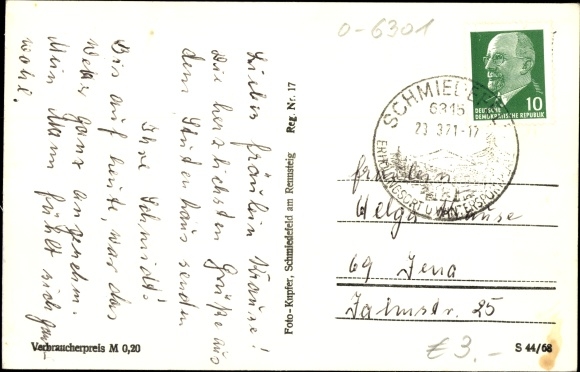 o-6301
Liebes Fräulein Krause!
Die herzlichsten Grüße aus
dem senden
Ihre Schmidt!
Bis auf heute, war das
Wetter ganz angenehm.
Mein Mann fühlt sich ganz
wohl.
Verbraucherpreis M 0,20
Foto-Kupfer, Schmiedefeld am Rennsteig Reg. Nr. 17
SCHMIEDEFELD
6315
23.3.71-17
ERHOLUNGSORT U. WINTERSPORT
10
DEUTSCHE
DEMOKRATISCHE REPUBLIK
Fräulein
Helga Krause
69 Jena
Jahnstr. 25
€ 3.-
S 44/68